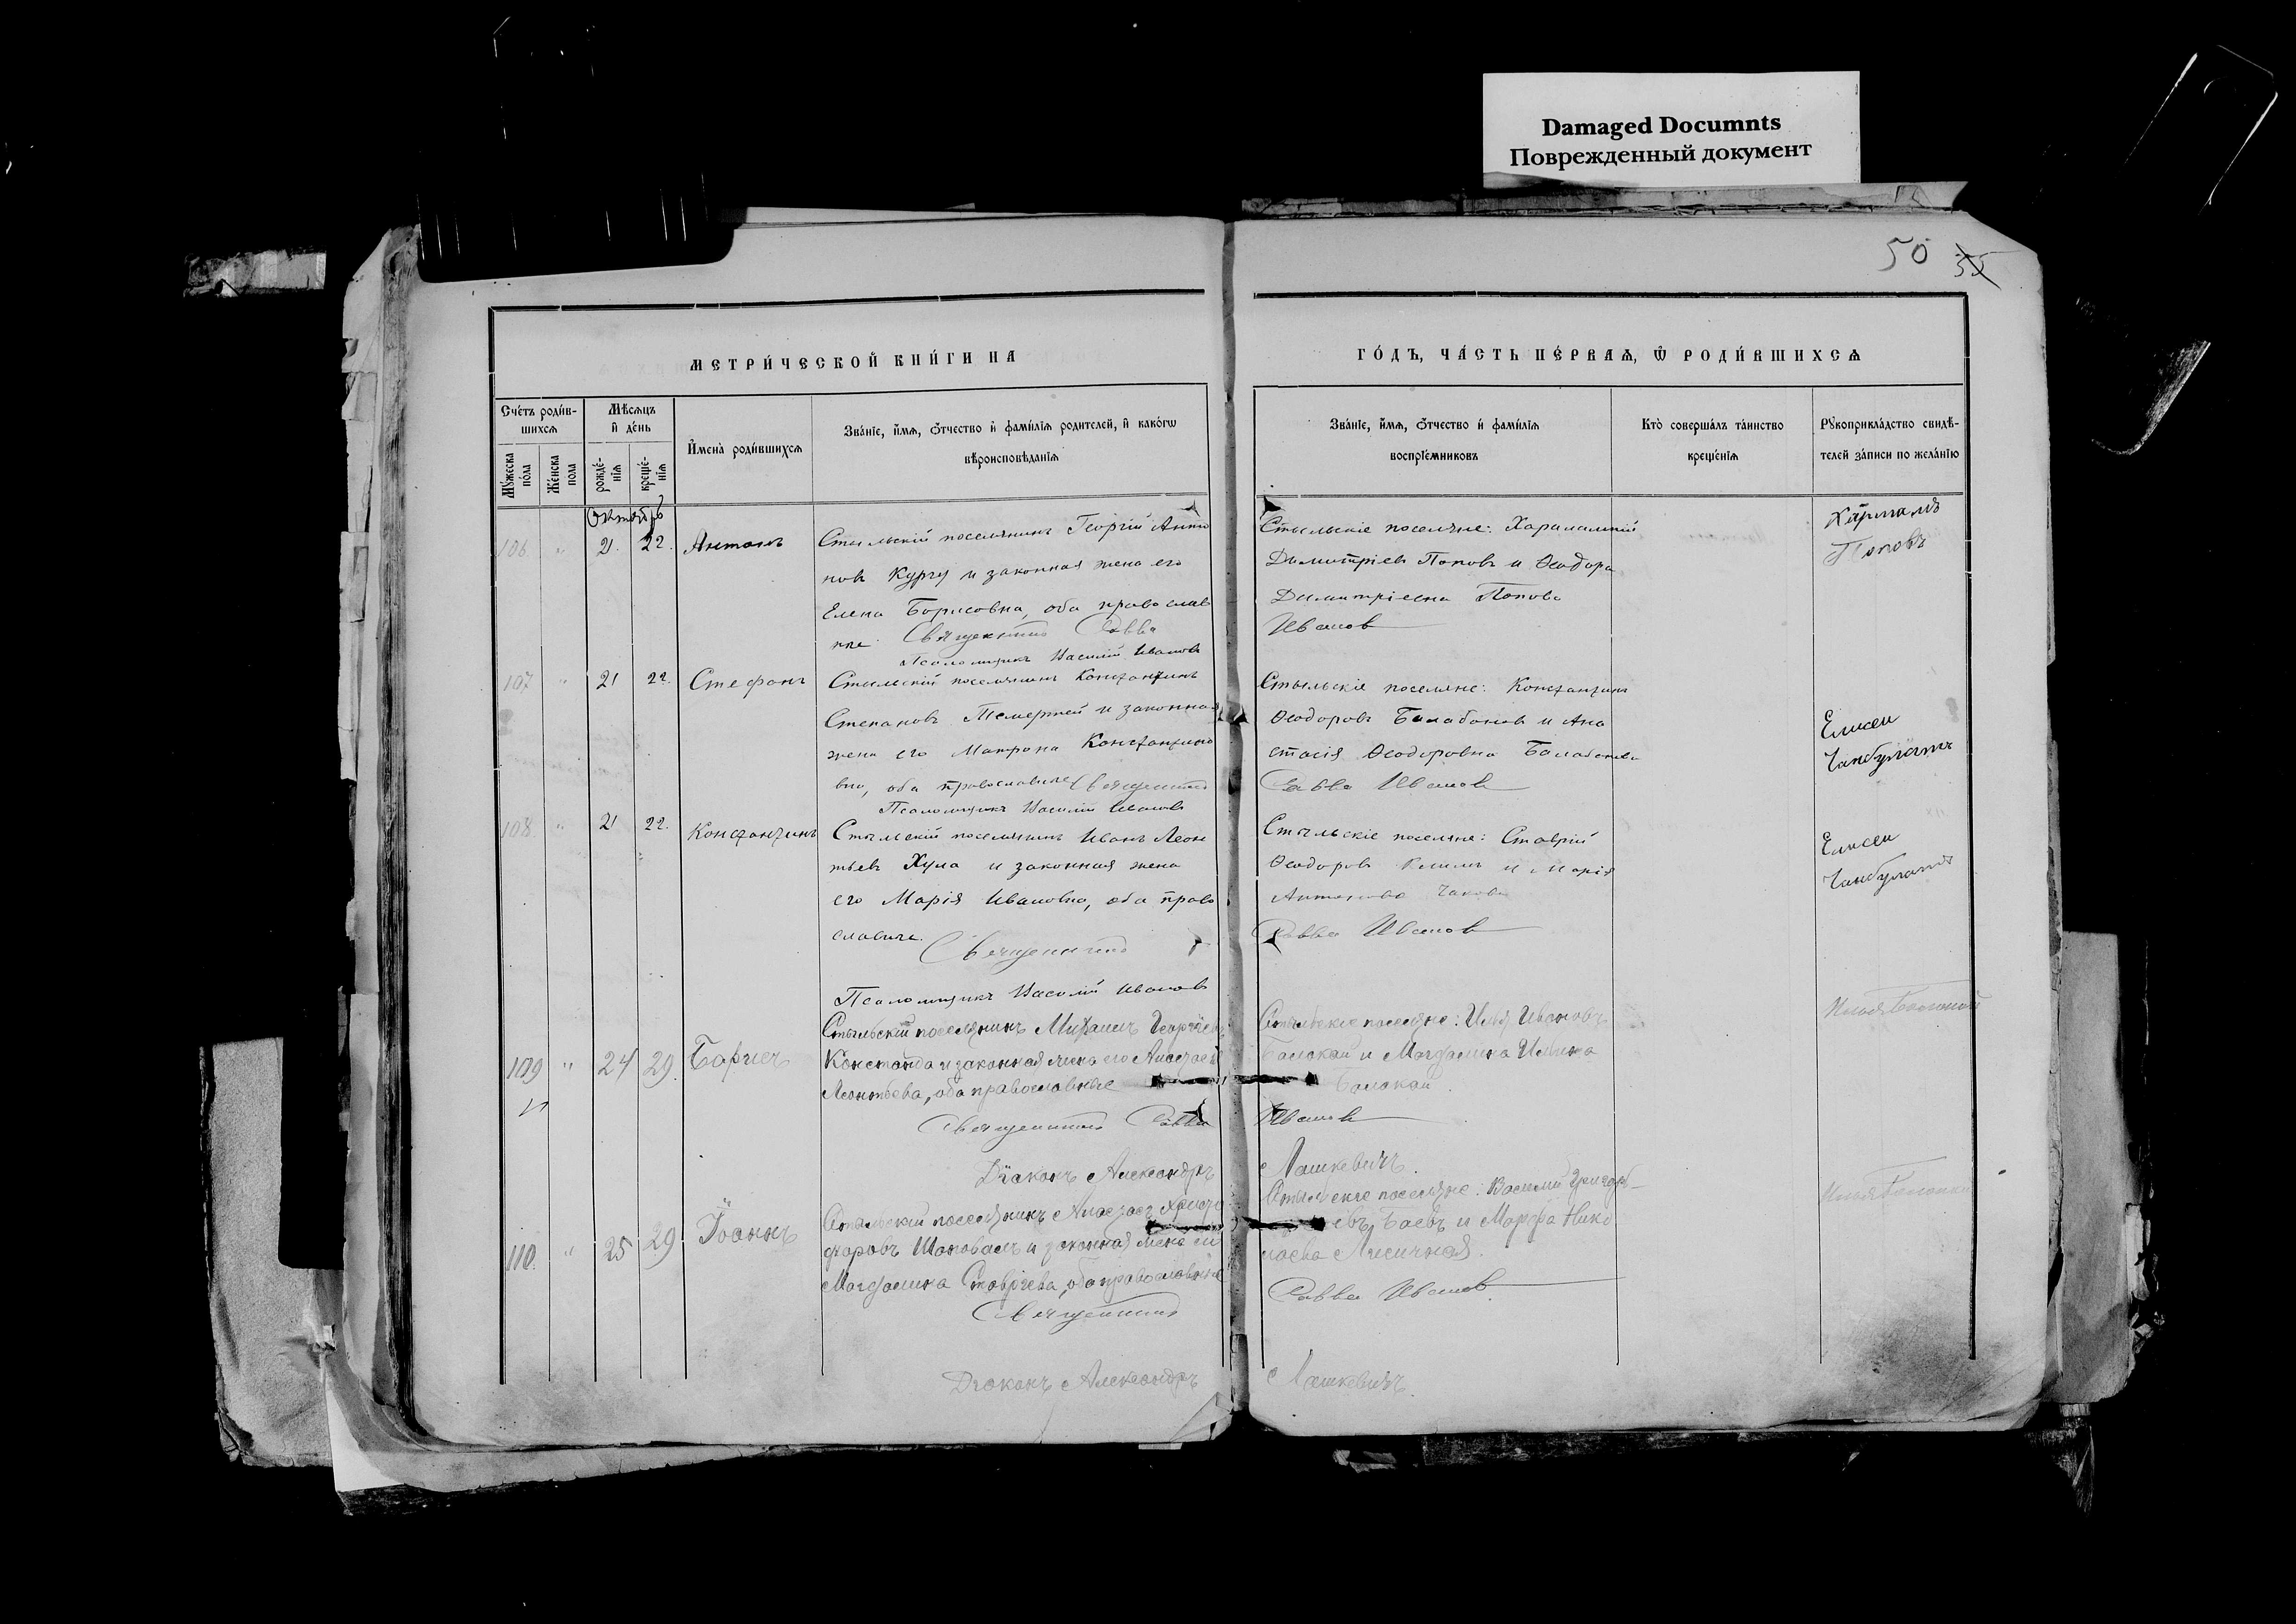 Damaged Documnts
Поврежденный документ
50 35
МЕТРИ́ЧЕСКОЙ КНИ́ГИ НА
ГО́ДЪ, ЧА́СТЬ ПЕ́РВАѦ, Ѡ҆ РОДИ́ВШИХСѦ
Сче́тъ роди́в-
шихсѧ
Мѣ́сѧцъ
и҆ де́нь
Мꙋ́жеска
по́ла
Же́нска
пола
рожде́-
нїѧ
креще́-
нїѧ
И҆мена̀ роди́вшихсѧ
Зва́нїе, и҆́мѧ, ѻ҆́тчество и҆ фами́лїѧ родителей, и҆ како́гѡ
вѣроисповѣ́данїѧ
Зва́нїе, и҆́мѧ, ѻ҆́тчество и҆ фами́лїѧ
воспрїе́мниковъ
Кто̀ соверша́лъ та́инство
креще́нїѧ
Рꙋкоприкла́дство свидѣ́-
телей за́писи по жела́нїю
Октябрь
106 " 21. 22. Антонъ
Стыльскій поселянинъ Георгій Анто
новъ Кургу и законная жена его
Елена Борисовна, оба православ
ные. Священникъ Савва
Псаломщикъ Василій Ивановъ
Стыльскіе поселяне: Харалампій
Димитріевъ Поповъ и Ѳеодора
Димитріевна Попова
Ивановъ
Поповъ
107 " 21 22. Стефанъ
Стыльскій поселянинъ Константинъ
Степановъ и законная
жена его Матрона Константино
вна, оба православные Священникъ
Псаломщикъ Василій Ивановъ
Стыльскіе поселяне: Константинъ
Ѳеодоровъ Балабановъ и Ана
стасія Ѳеодоровна Балабанова
Савва Ивановъ
Елисей
108. " 21 22. Константинъ
Стыльскій поселянинъ Иванъ Леон
тьевъ Хула и законная жена
его Марія Ивановна, оба право
славные.
Священникъ
Псаломщикъ Василій Ивановъ
Стыльскіе поселяне: Ставрій
Ѳеодоровъ и Марія
Савва Ивановъ
Елисей
109 " 24 29. Борисъ
Стыльскій поселянинъ Михаилъ Георгіевъ
Константа и законная жена его Анастасія
Леонтьева, оба православные
Священникъ Савва
Діаконъ Александръ
Стыльскіе поселяне: Илья Ивановъ
Балакай и Магдалина Ильина
Балакай.
Ивановъ
Машкевичъ.
Илья
110. " 25 29 Іоаннъ
Стыльскій поселянинъ Анастасъ Христо
форовъ Шаповалъ и законная жена его
Магдалина Ставріева, оба православные
Священникъ
Діаконъ Александръ
Стыльскіе поселяне: Василій Григорь-
евъ Баевъ и Марфа Нико
лаева
Савва Ивановъ.
Машкевичъ.
Илья